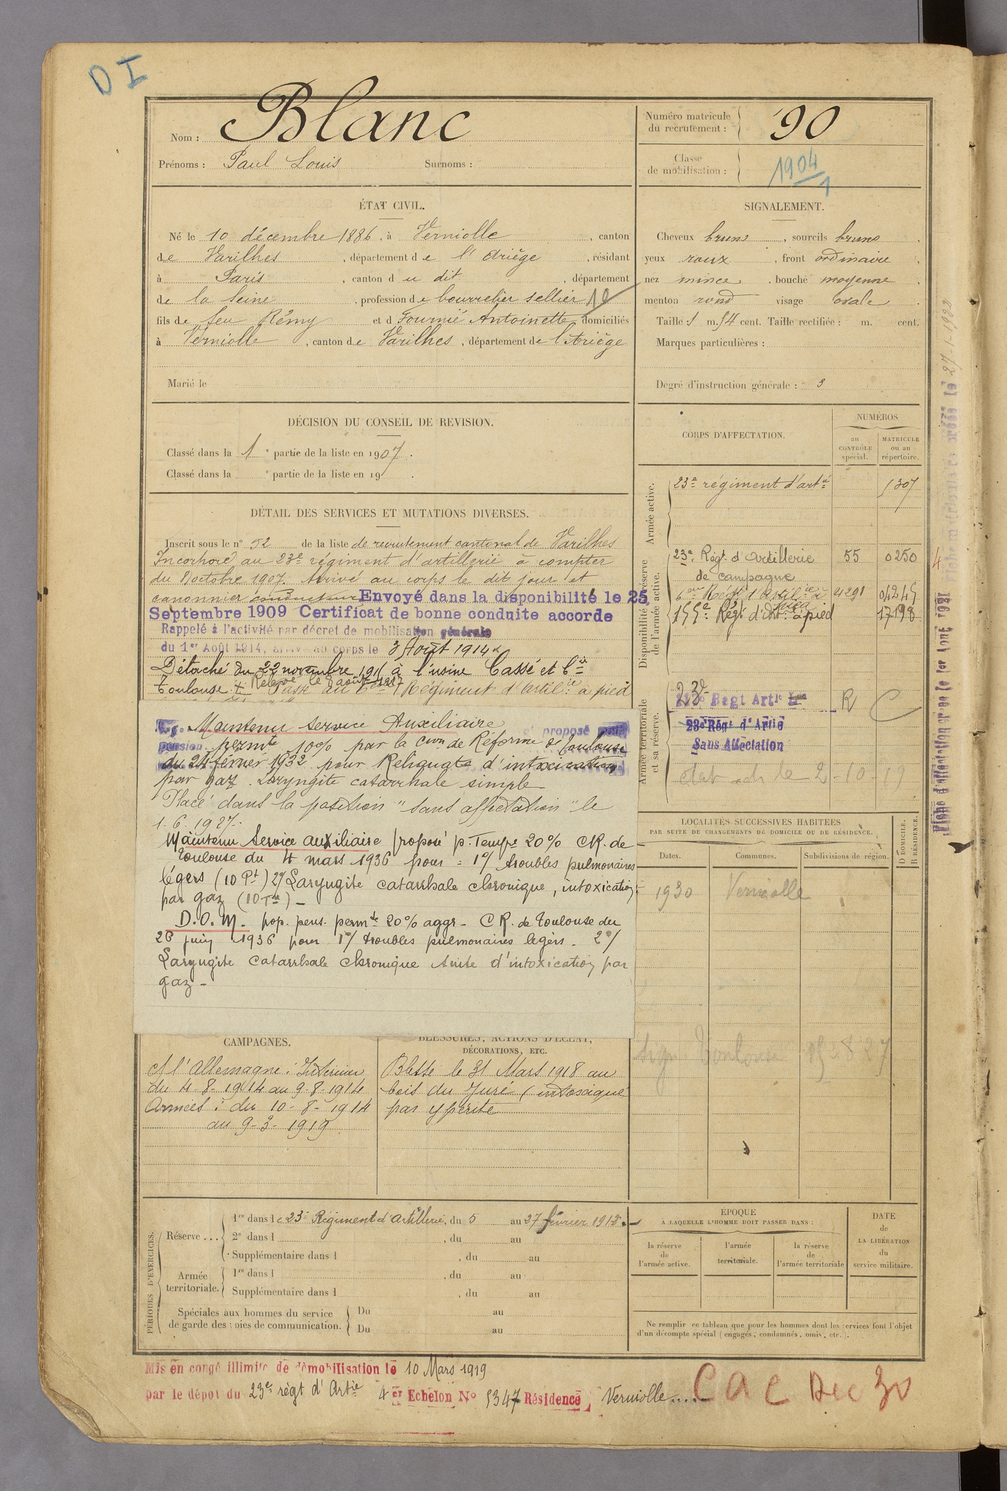 D I
Nom : Blanc
Prénoms : Paul Louis Surnoms :
Numéro matricule
du recrutement : 90
Classe
de mobilisation : 1904
1
ÉTAT CIVIL.
Né le 10 décembre 1886, à Verniolle, canton
de Varilhes, département de l'Ariège, résidant
à Paris, canton du dit, département
de la Seine, profession de bourrelier sellier
fils de feu Rémy et d Fournié Antoinette, domiciliés
à Verniolle, canton de Varilhes, département de l'Ariège
Marié le
SIGNALEMENT.
Cheveux bruns, sourcils bruns
yeux roux, front ordinaire
nez mince, bouche moyenne
menton rond visage ovale
Taille : 1 m. 54 cent. Taille rectifiée : m. cent.
Marques particulières :
Degré d'instruction générale : 3
DÉCISION DU CONSEIL DE REVISION.
Classé dans la 1e partie de la liste en 1907.
Classé dans la e partie de la liste en 19 .
DÉTAIL DES SERVICES ET MUTATIONS DIVERSES.
Inscrit sous le n° 52 de la liste de recrutement cantonal de Varilhes
Incorporé au 23e régiment d'artillerie à compter
du 8 octobre 1907. Arrivé au corps le dit jour et
canonnier conducteur Envoyé dans la disponibilité le 25
Septembre 1909 Certificat de bonne conduite accorde
Rappelé à l'activité par décret de mobilisation générale
du 1er Août 1914. arrivé au corps le 3 Août 1914
Détaché du 22 novembre 1915 à l'usine Cassé et Cie
Toulouse Passé au Régiment d'artillie à pied
Maintenu service Auxiliaire et proposé pour
pension permte 10% par la Cion de Réforme de Toulouse
du 24 février 1932 pour Reliquats d'intoxication
par gaz Laryngite catarrhale simple
Placé dans la position "sans affectation" le
1.6.1927.
Maintenu Service auxiliaire proposé p. Temp.re 20% CR. de
Toulouse du 4 mars 1936 pour : 1°/ troubles pulmonaires
légers (10 Pt) 2°/ Laryngite catarrhale chronique, intoxication
par gaz (10 Te) -
D.O.M. - prop. pens. permte 20% aggr. - CR. de Toulouse du
26 juin 1936 pour 1°/ troubles pulmonaires légers - 2°/
Laryngite catarrhale chronique suite d'intoxication par
gaz -
CORPS D'AFFECTATION.
NUMÉROS
au
contrôle
spécial.
matricule
ou au
répertoire.
Armée active.
23e régiment d'artie 1307
Disponibilité et réserve
de l'armée active.
23e Régt d'Artillerie 55 0250
de campagne
155e Régt d'Art. à pied 17198
Armée territoriale
et sa réserve.
23e Regt Artie R C
23e Régt d'Artie
Sans Affectation
LOCALITÉS SUCCESSIVES HABITÉES
PAR SUITE DE CHANGEMENTS DE DOMICILE OU DE RÉSIDENCE.
Dates. Communes. Subdivisions de région. D DOMICILE. R RÉSIDENCE.
1930 Verniolle
CAMPAGNES.
Ct l'Allemagne : Intérieur
du 4-8-1914 au 9-8-1914
Armées : du 10-8-1914
au 9-3-1919
BLESSURES, ACTIONS D'ÉCLAT,
DÉCORATIONS, ETC.
Blessé le 31 Mars 1918 au
bois du Juré (intoxiqué
par ypérite
PÉRIODES D'EXERCICES.
Réserve ....
1re dans le 23e Régiment d'artillerie, du 5 au 27 février 1913.
2e dans l , du au
Supplémentaire dans l , du au
Armée
territoriale.
1re dans l , du au
Supplémentaire dans l , du au
Spéciales aux hommes du service
de garde des voies de communication.
Du au
Du au
ÉPOQUE
À LAQUELLE L'HOMME DOIT PASSER DANS :
la réserve
de
l'armée active.
l'armée
territoriale.
la réserve
de
l'armée territoriale
DATE
de
LA LIBÉRATION
du
service militaire.
Ne remplir ce tableau que pour les hommes dont les services font l'objet
d'un décompte spécial (engagés, condamnés, omis, etc.).
Mis en congé illimité de démobilisation le 10 Mars 1919
par le dépôt du 23e régt d'Artie 4 er Echelon N° 5347 Résidence Verniolle....